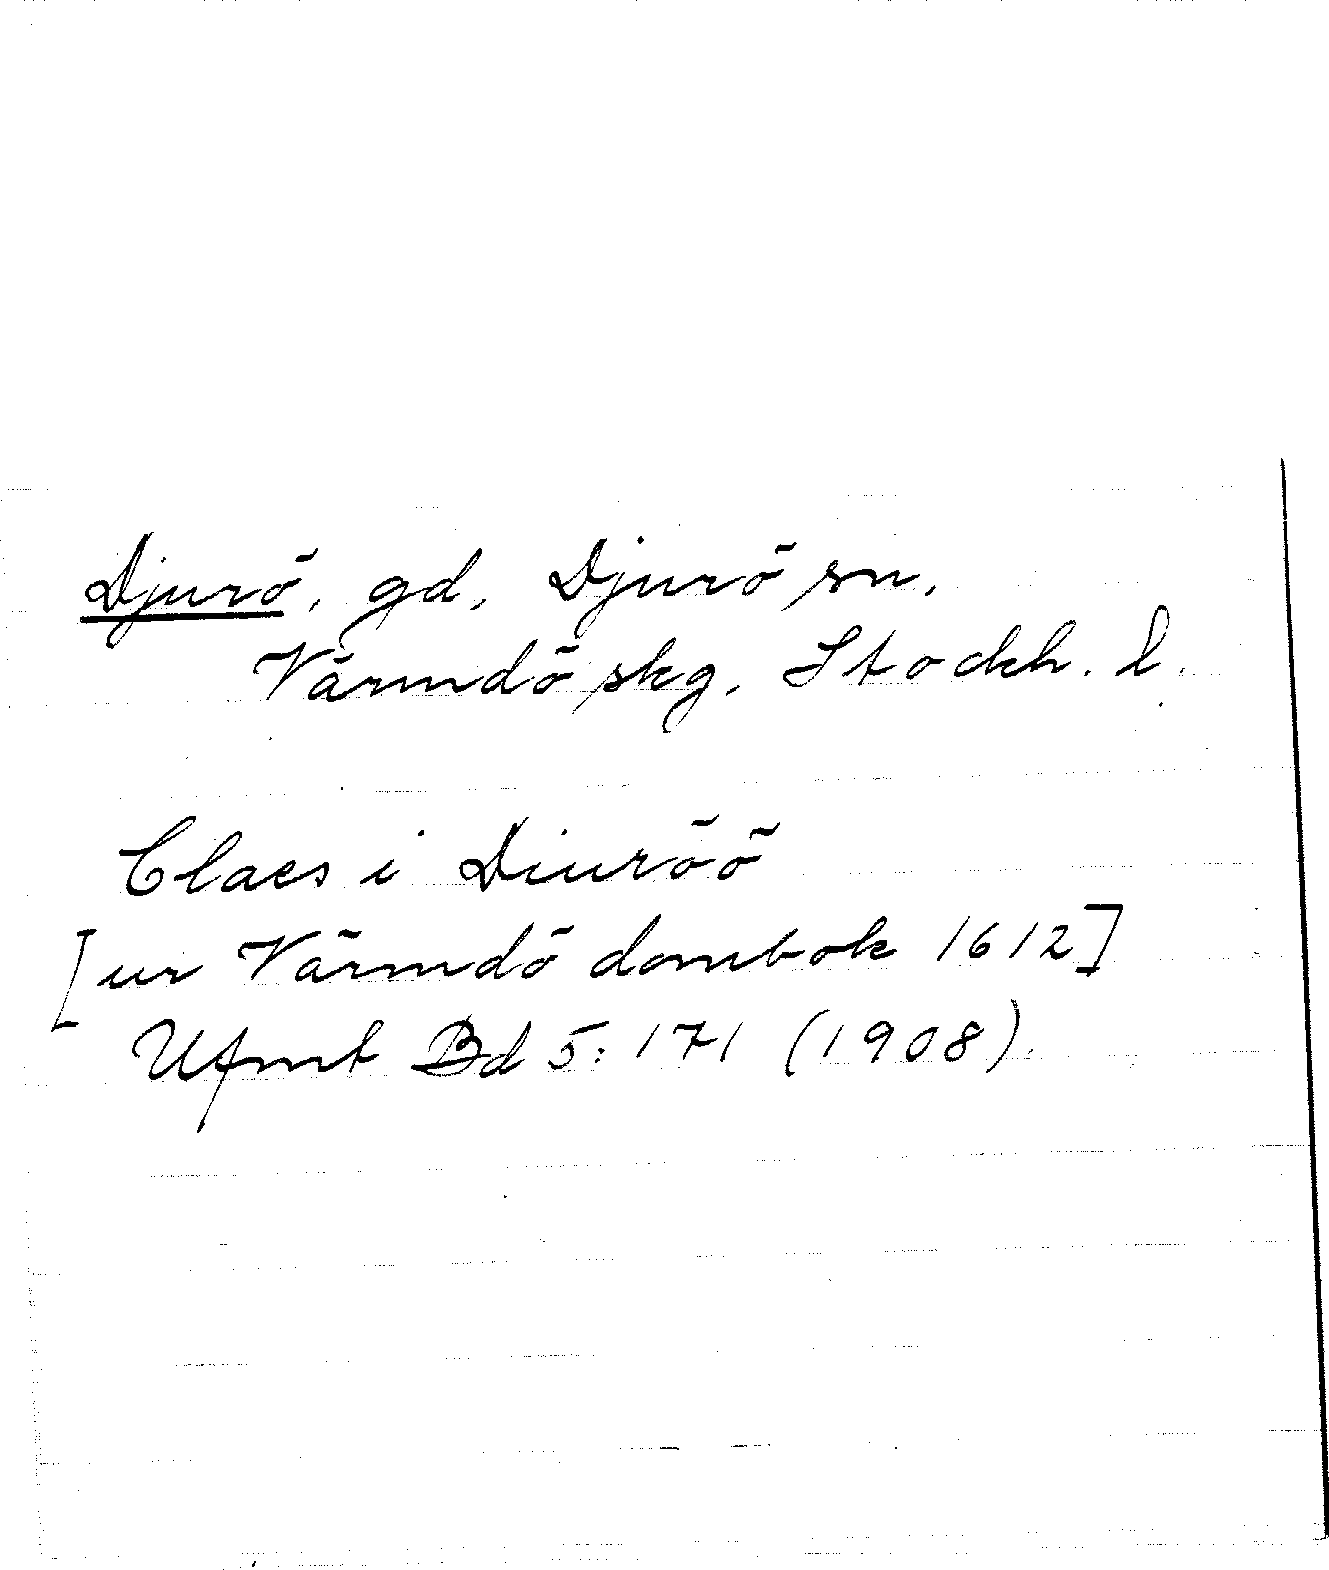 Djurö, gd, Djurö sn,
Värmdö skg, Stockh. l.
Claes i Diuröö
[ur Värmdö dombok 1612]
Ufmt Bd 5: 171 (1908).